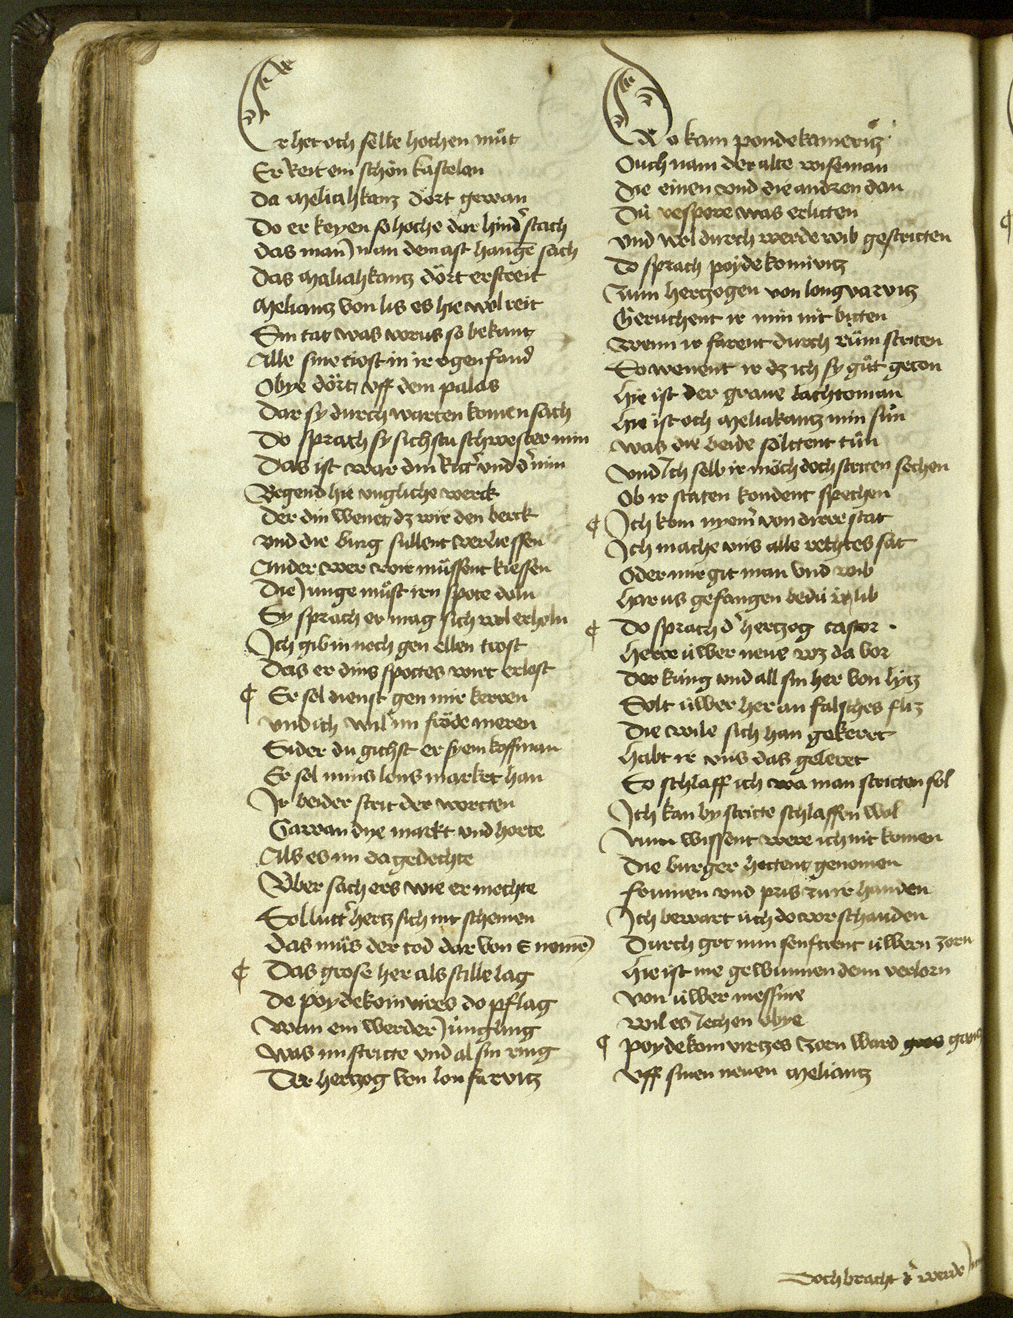 Er het och selbe hochen muͦt
Er reit ein schön kastelan
Da meliahkanz dört gewan
Do er keyen so hoche dar hind͛ stach
Das man in an dem ast hangē sach
Das maliahkantz dört erstreit
Meliantz von lis es hie wol reit
Sin tat was vor us so bekant
Alle sine trost in ir ogen fand
Obye dört vff dem palas
Dar sy durch warten komen sach
Do sprach sy sich stu schwester min
Das ist war din Rit͛ vnd d͛ min
Begend hie vngliche werck
Der din wenet dz wir den berck
vnd die burg süllent verliessen
Ander wer wir müssent kiessen
Die junge muͦst irn spote doln
Sy sprach er mag sich wol erholn
Ich gib im noch gen ellen trost
Das er dins spottes wirt erlost
¶ Er sol dienst gen mir keren
vnd ich wil im fröde meren
Sider du gichst er sy ein koffman
Er sol mins lons market han
Ir beider strit der wortten
Gawan die markt vnd horte
Als es im da gedechte
Vber sach ers wie er mochte
Sol lutt͛ hertz sich nit schemen
Das muͦs der tod dar von E nemē
¶ Das grose her als stille lag
De poydekomvires do pflag
Wan ein werder jüngling
Was im stritte vnd al sin ring
Der hertzog von lonfarvitz
Do kam pondekameritz
Ouch nam der alte wise man
Die einen vnd die andren dan
Dü vespere was erlitten
vnd wol durch werde wib gestritten
Do sprach poydekomvitz
Zum hertzogen von longvarvitz
Geruchent ir min nit bitten
Wenn ir farent durch rüm striten
So wenent ir dz ich sy guͦt geton
Hie ist der graue lachtoman
Hie ist och meliakantz min sun
Was die beide söltent tün
Vnd ich selb ir möch doch striten sechen
Ob ir striten kondent spechen
¶ Ich kom nyem͛ von dirre stat
Ich mache vns alle vechtes sat
Oder mir git man vnd wib
Har us gefangen bedü ir lib
¶ Do sprach d͛ hertzog castor
Herre üwer neue wz da vor
Der küng vnd all sin her von lytz
Solt üwer her an falsches fliz
Die wile sich han gekeret
Habt ir vns das geleret
So schlaff ich wa man stritten sol
Ich kan by stritte schlaffen wol
Nun wissent were ich nit komen
Die burger hettent genomen
Frumen vnd pris zuͦ ir handen
Ich bewart üch do vor schanden
Durch got nun senftent üwern zorn
Hie ist me gewunnen denn verlorn
Von üwer messnie
Wil es iechen obye
¶ Poydekomvirtzes zorn ward gantz
Vff sinen neuen meliantz
Doch bracht d͛ werde